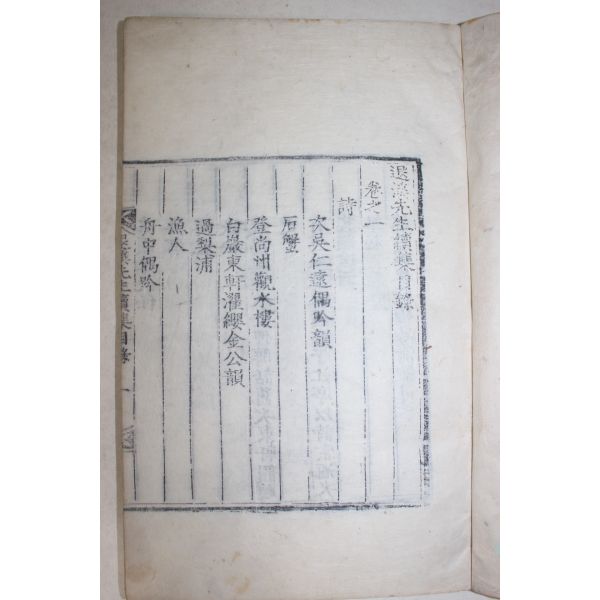 退溪先生續集目錄
卷之一
詩
次吳仁遠偶吟韻
石蟹
登尙州觀水樓
白巖東軒濯纓金公韻
過梨浦
漁人
舟中偶吟
退溪先生續集目錄 一